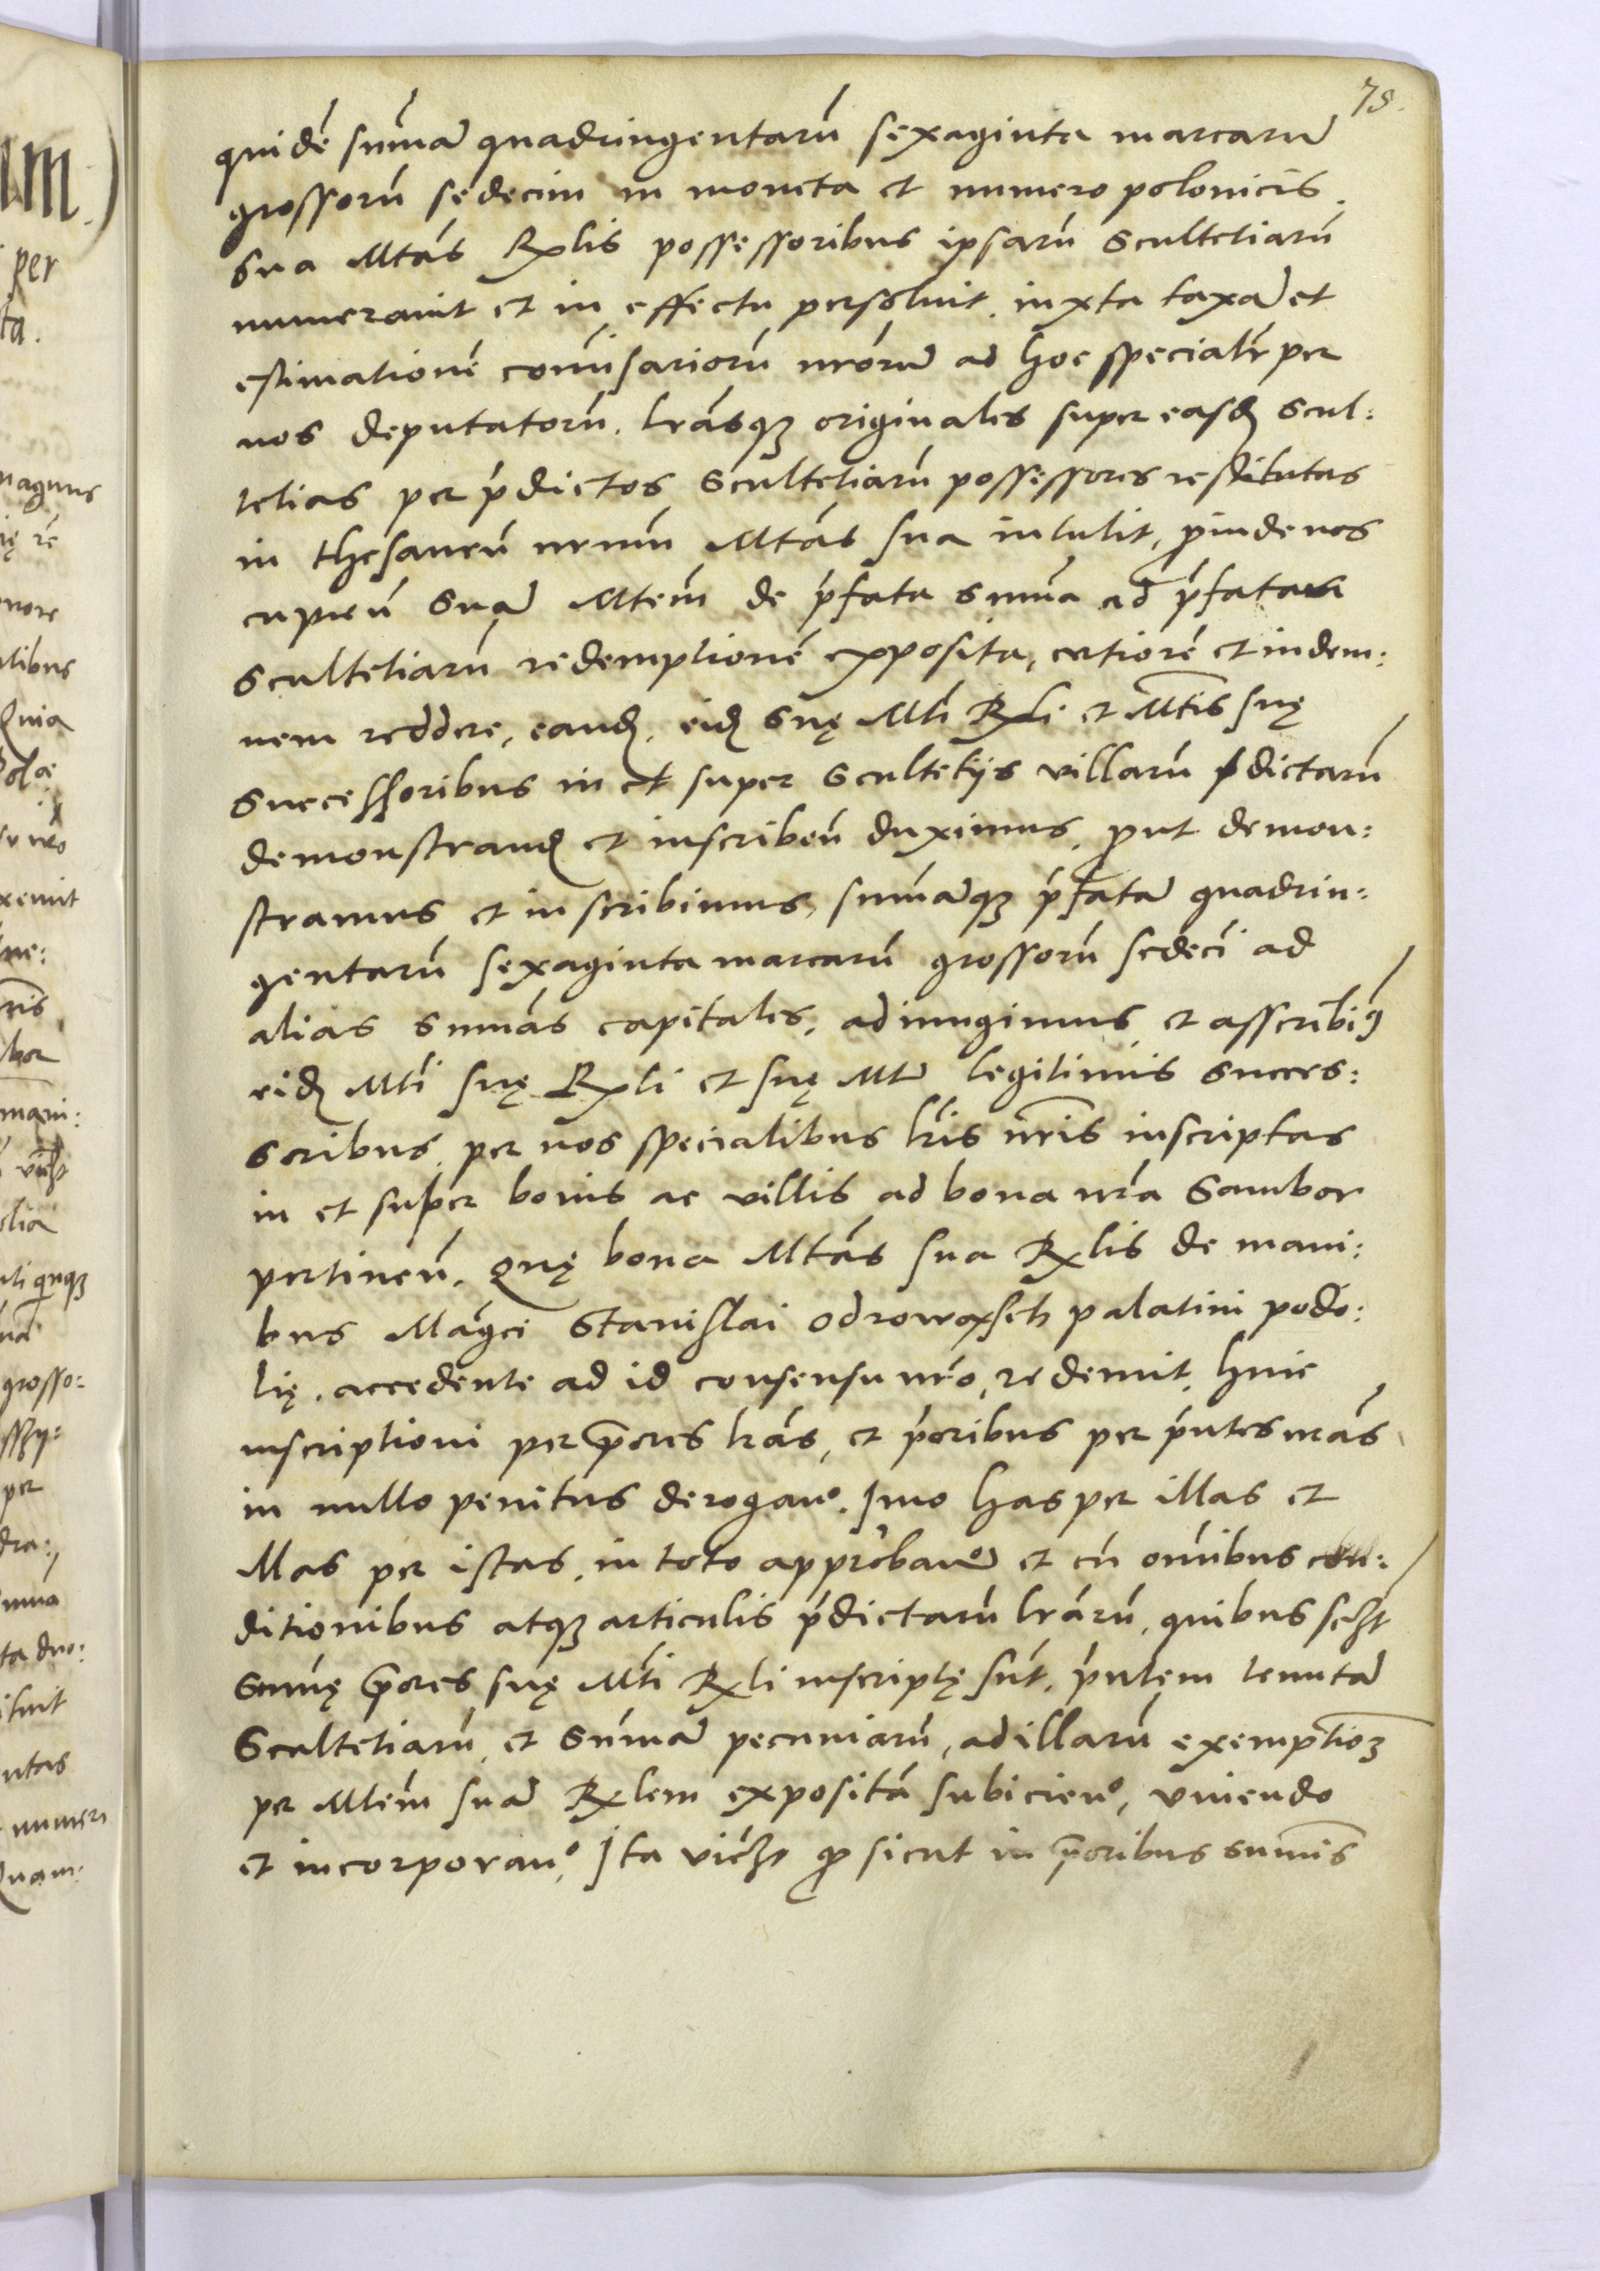 78.
quidē sum̄a quadringentarū sexaginta marcarū
grossorū sedecim in moneta et numero polonicis.
Sua Mtās Rxlis possessoribus ipsarū Scultetiarū
numerauit et in effectu persoluit, iuxta taxā et
estimationē com̄isariorū nr̄orū ad hoc specialr̄ per
nos deputatorū, lrāsqꝫ originales super easd. Scul:
tetias per p̄dictos Scultetiarū possessores restitutas
in thesaurū nrūm Mtās sua intulit, proinde nos
cupieñ Suā Mtem̄ de p̄fata Sum̄a ad p̄fatarū
Scultetiarū redemptionē exposita, certiorē et indem:
nem reddere, eand. eid. Suę Mti Rxli et Mtis suę
Successoribus in et super Scultetijs villarū p̄dictarū
demonstrand. et inscribeñ duximus, prout demon:
stramus et inscribimus, sum̄āqꝫ p̄fatā quadrin:
gentarū sexaginta marcarū grossorū sedeci ad
alias Sum̄as capitales, adiungimus et asscribimꝰ
eid. Mti suę Rxli et suę Mtis legitimis Succes:
soribus, per nos specialibus lr̄is nr̄is inscriptas
in et super bonis ac villis ad bona nr̄a Sambor
pertineñ. Quę bona Mtās sua Rxlis de mani:
bus Mag̃ci Stanislai Odrowąsch palatini podo:
lię, accedente ad id consensu nr̄o, redemit, huic
inscriptioni per priores lrās, et p̄oribus per p̄ntes nrās
in nullo penitus derogan°. Imo has per illas et
illas per istas, in toto approbañ et cū om̄ibus con:
ditionibus atqꝫ articulis p̄dictarū lrārū, quibus sczt
Sum̄ę priores suę Mti Rxli inscriptę sūt, p̄ntem tenutā
Scultetiarū et Sum̄ā pecuniarū, ad illarū exemptioꝫ
per Mtem̄ suā Rxlem expositā subicien°, vniendo
et incorporan°, Ita viczt ꝙ sicut in prioribus sum̄is